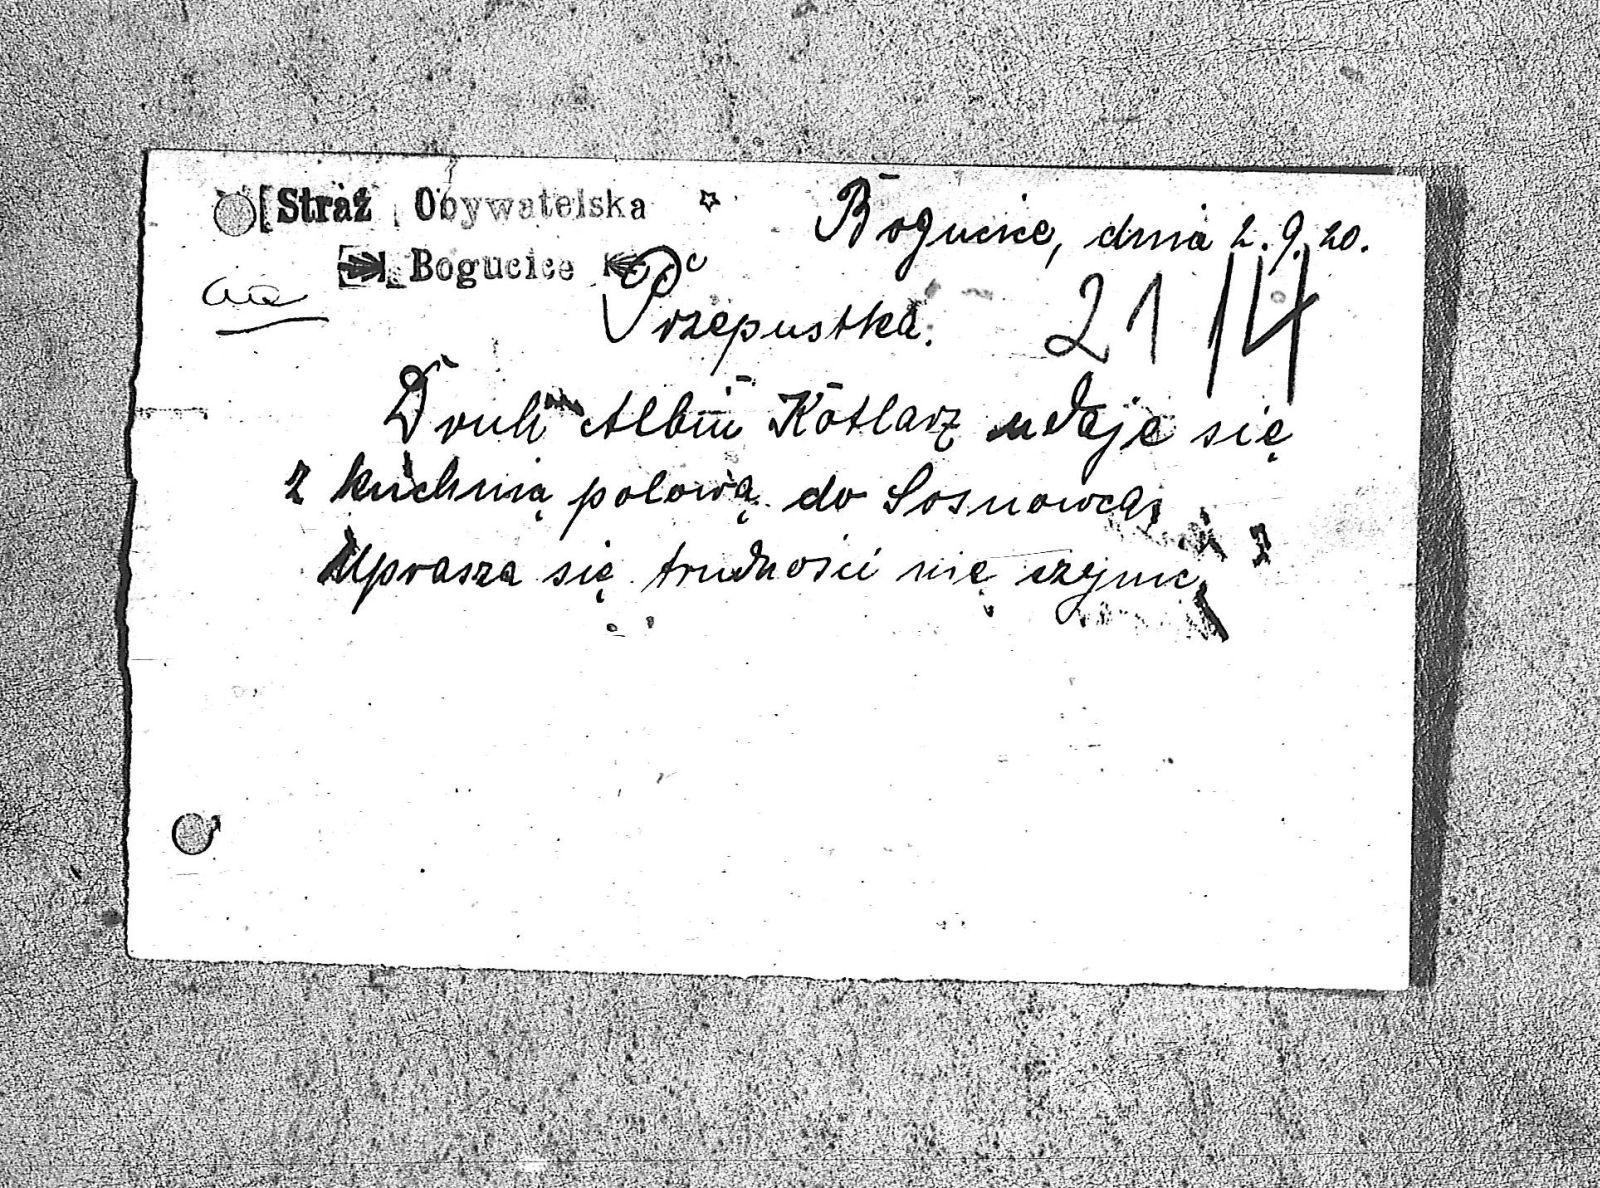 Straż Obywatelska
Bogucice
Bogucice, dnia 2.9.20.
Przepustka.
21 14
Druh Albin Kotlarz udaje się
z kuchnią polową do Sosnowca,
Uprasza się trudności nie czynić